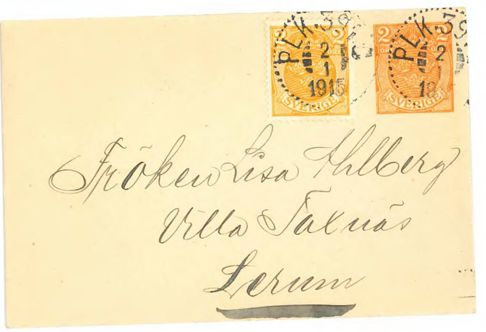 PLK.38
2
1
1915
2 2
SVERIGE
PLK.38
2
1
19
2 2
SVERIGE
Fröken Lisa Ahlberg
Villa Taxnäs
Lerum